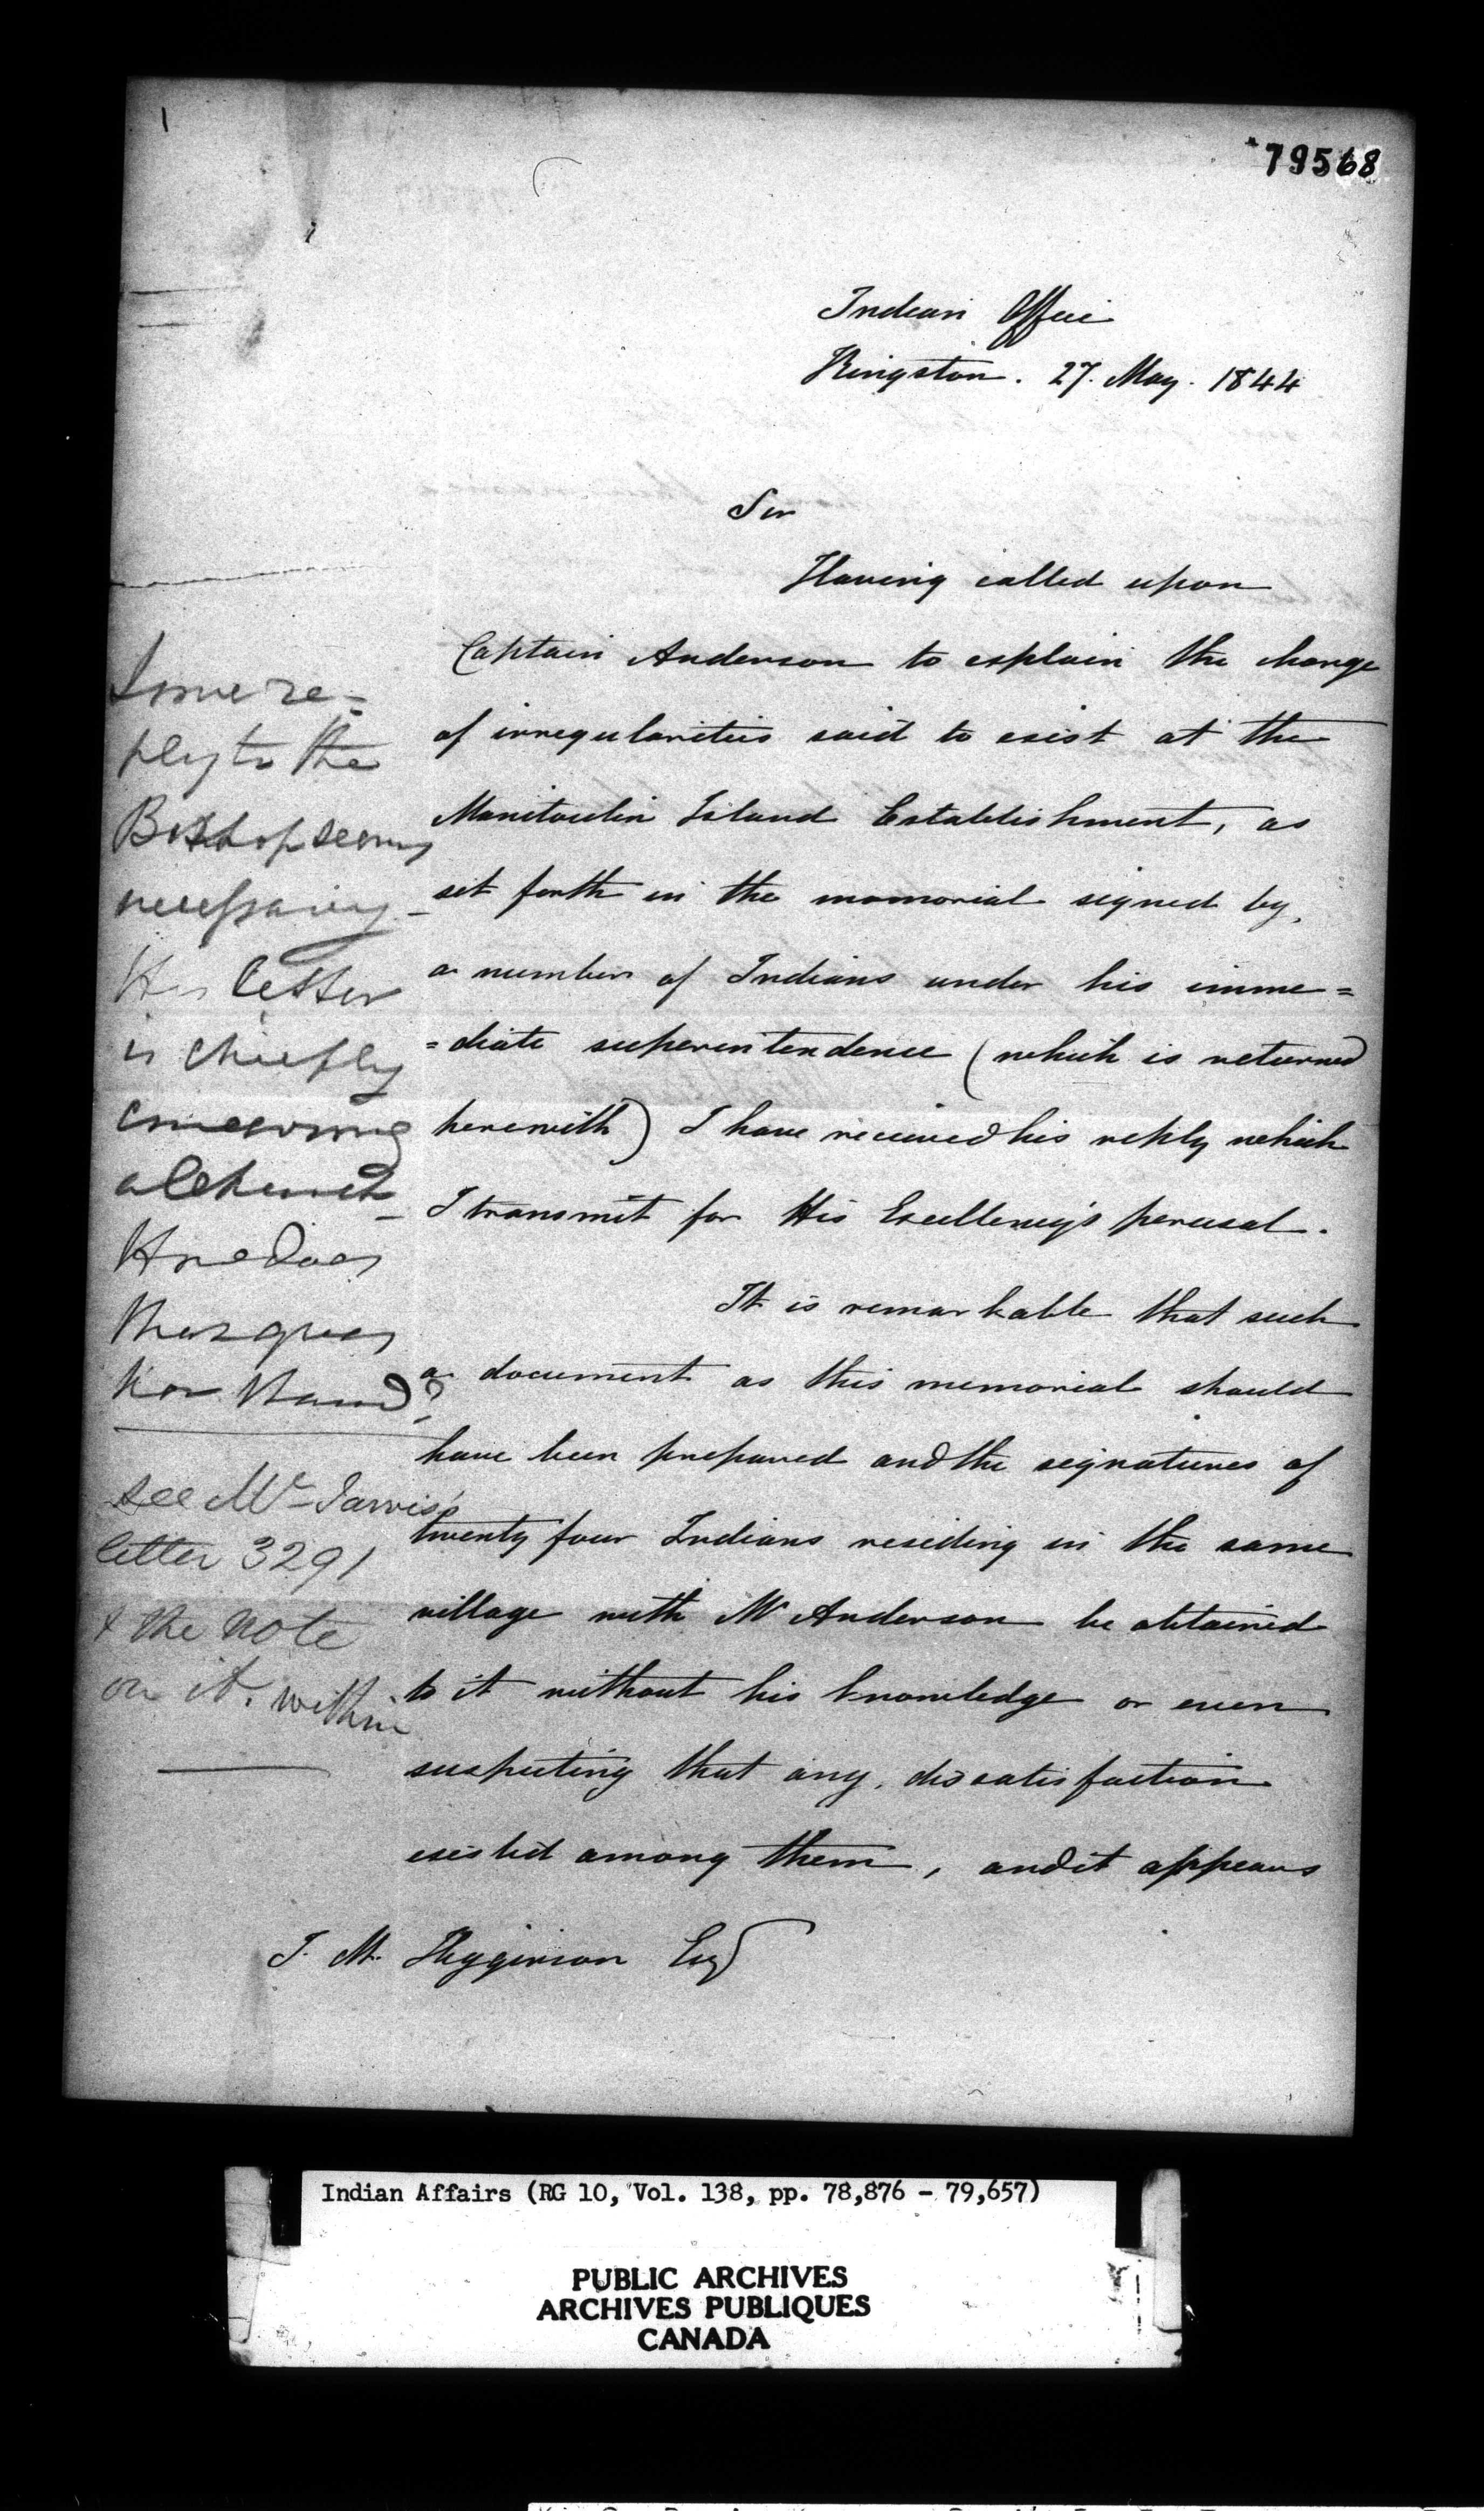 79568
Indian Office
Kingston. 27. May. 1844
Sir
Having called upon
Captain Anderson to explain the charge
of irregularities said to exist at the
Manitoulin Island Establishment, as
set forth in the memorial signed by,
a number of Indians under his imme=
=diate superintendence (which is returned
herewith) I have received his reply which
I transmit for His Excellency's perusal.
It is remarkable that such
a document as this memorial should
have been prepared and the signatures of
twenty four Indians residing in the same
village with Mr Anderson be obtained
to it without his knowledge or even
suspecting that any, dissatisfaction
existed among them, and it appears
J. M. Higginson Esq
Some re=
ply to the
Bishop seems
necessary_
His letter
is chiefly
concerning
a Church_
How does
that question
now stand?
see Mr Jarvis's
letter 3291
& the note
on it. within
Indian Affairs (RG 10, Vol. 138, pp. 78,876 - 79,657)
PUBLIC ARCHIVES
ARCHIVES PUBLIQUES
CANADA